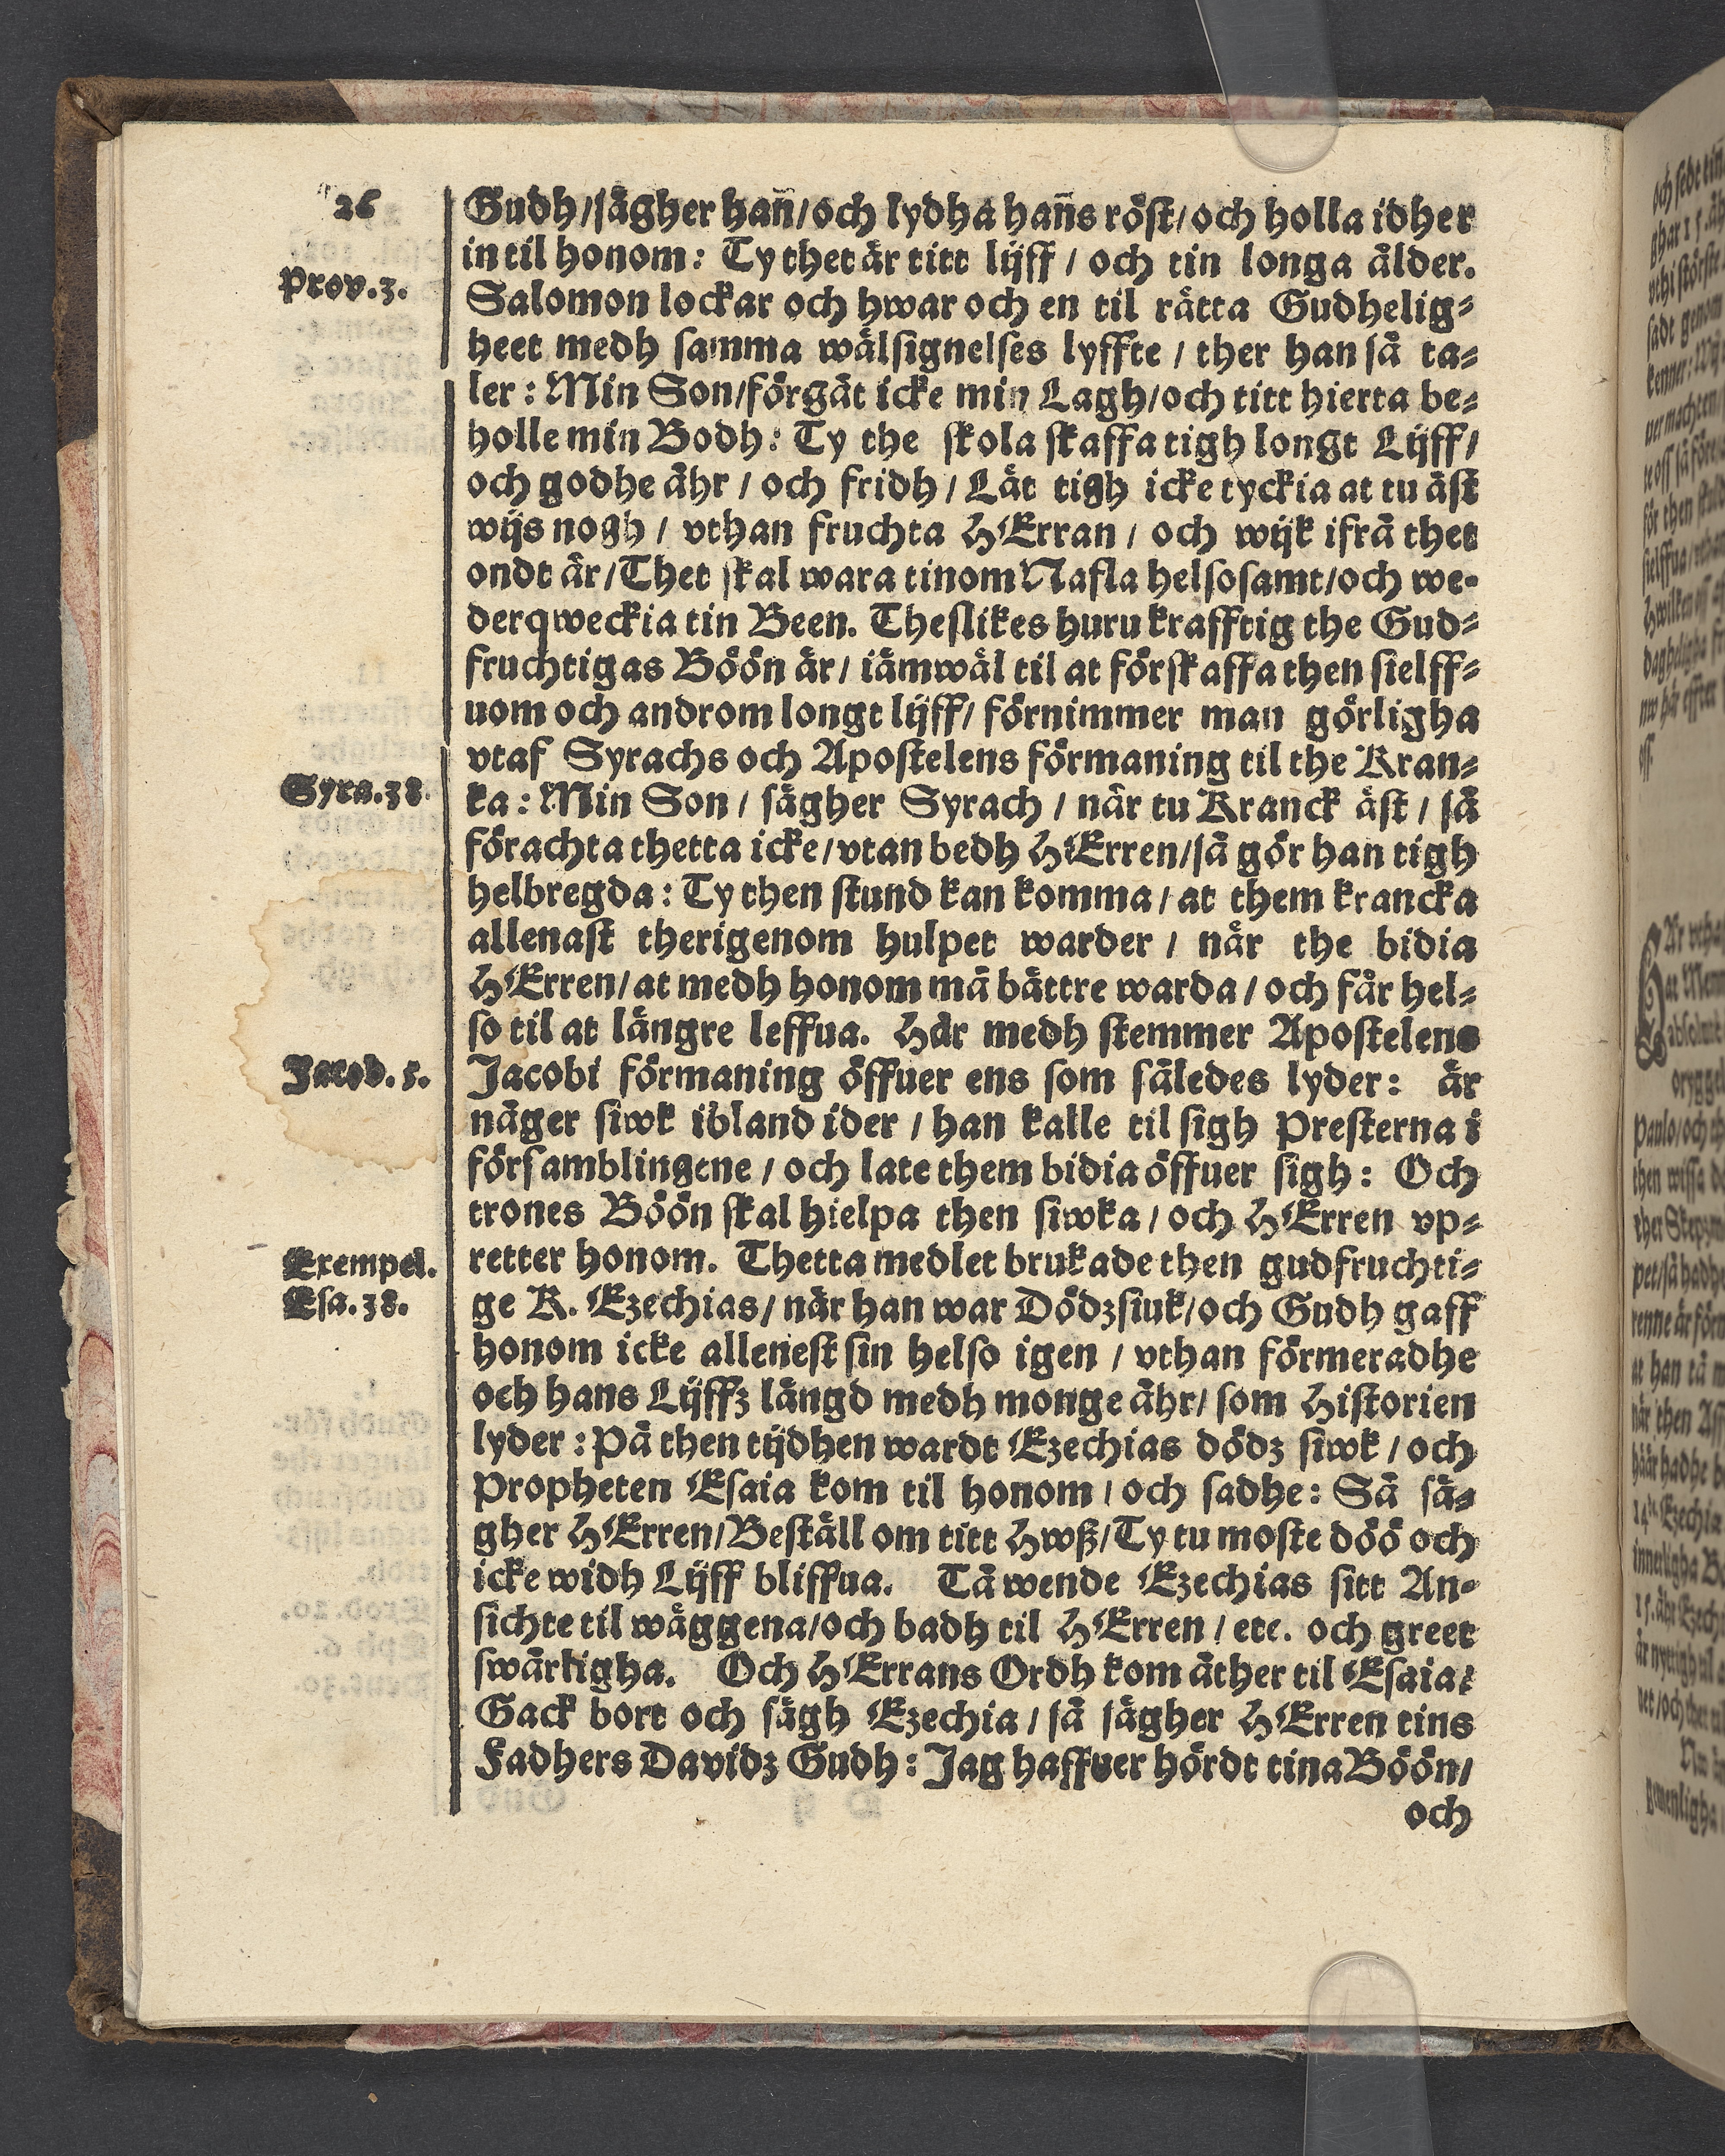 26
Gudh/sägher han̄/och lydha han̄s röst/och holla idher
in til honom: Ty thet är titt lijff / och tin longa ålder.
Prov.3.
Salomon lockar och hwar och en til rätta Gudhelig⸗
heet medh samma wälsignelses lyffte / ther han så ta⸗
ler: Min Son/förgät icke min Lagh/och titt hierta be⸗
holle min Bodh: Ty the skola skaffa tigh longt Lijff/
och godhe åhr / och fridh / Låt tigh icke tyckia at tu äst
wijs nogh / vthan fruchta HErran / och wijk ifrå thet
ondt är/Thet skal wara tinom Nafla helsosamt/och we⸗
derqweckia tin Been. Theslikes huru krafftig the Gud⸗
fruchtigas Böön är/ iämwäl til at förskaffa then sielff⸗
uom och androm longt lijff/ förnimmer man görligha
vtaf Syrachs och Apostelens förmaning til the Kran⸗
Syra.38.
ka: Min Son / sägher Syrach / när tu Kranck äst / så
förachta thetta icke/vtan bedh HErren/så gör han tigh
helbregda: Ty then stund kan komma / at them krancka
allenast therigenom hulpet warder / när the bidia
HErren/at medh honom må bättre warda / och får hel⸗
so til at längre leffua. Här medh stemmer Apostelens
Jacob.5.
Jacobi förmaning öffuer ens som således lyder: är
någer siwk ibland ider / han kalle til sigh Presterna i
församblingene / och late them bidia öffuer sigh: Och
trones Böön skal hielpa then siwka / och HErren vp⸗
Exempel.
retter honom. Thetta medlet brukade then gudfruchti⸗
Esa.38.
ge K. Ezechias/ när han war Dödzsiuk/och Gudh gaff
honom icke allenest sin helso igen / vthan förmeradhe
och hans Lijffz längd medh monge åhr/ som Historien
lyder: På then tijdhen wardt Ezechias dödz siwk / och
Propheten Esaia kom til honom / och sadhe: Så sä⸗
gher HErren/Beställ om titt Hwß/Ty tu moste döö och
icke widh Lijff bliffua. Tå wende Ezechias sitt An⸗
sichte til wäggena/och badh til HErren / etc. och greet
swårligha. Och HErrans Ordh kom åther til Esaia:
Gack bort och sägh Ezechia / så sägher HErren tins
Fadhers Davidz Gudh: Jag haffuer hördt tina Böön/
och